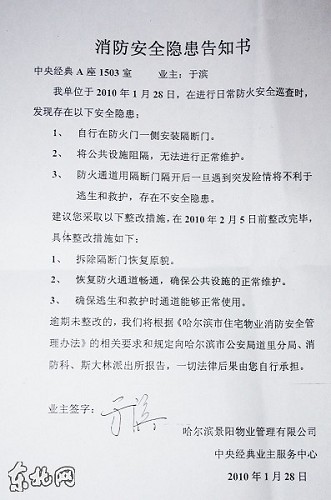 消防安全隐患告知书
中央经典 A 座 1503 室 业主：于滨
我单位于 2010 年 1 月 28 日，在进行日常防火安全巡查时，
发现存在以下安全隐患：
1、 自行在防火门一侧安装隔断门。
2、 将公共设施阻隔，无法进行正常维护。
3、 防火通道用隔断门隔开后一旦遇到突发险情将不利于
逃生和救护，存在不安全隐患。
建议您采取以下整改措施，在 2010 年 2 月 5 日前整改完毕，
具体整改措施如下：
1、 拆除隔断门恢复原貌。
2、 恢复防火通道畅通，确保公共设施的正常维护。
3、 确保逃生和救护时通道能够正常使用。
逾期未整改的，我们将根据《哈尔滨市住宅物业消防安全管
理办法》的相关要求和规定向哈尔滨市公安局道里分局、
消防科、斯大林派出所报告，一切法律后果由您自行承担。
业主签字： 于滨
哈尔滨景阳物业管理有限公司
中央经典业主服务中心
2010 年 1 月 28 日
东北网